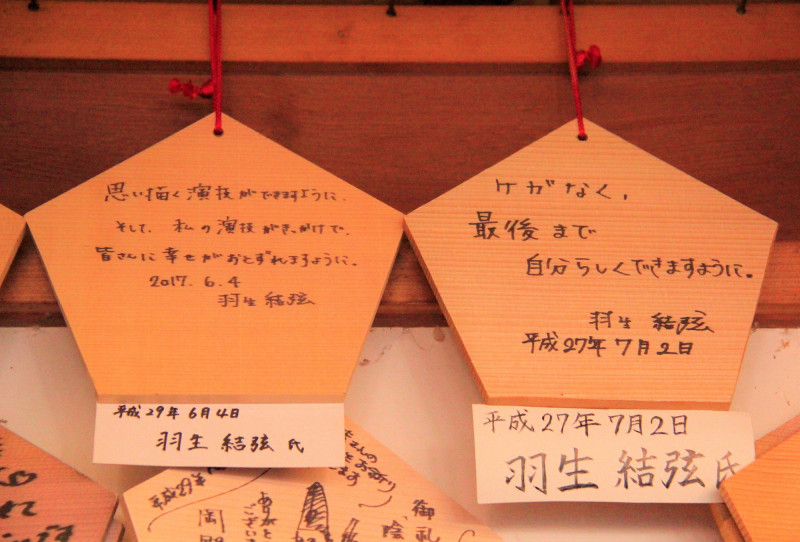 思い描く演技ができますように.
そして、私の演技がきっかけで、
皆さんに幸せがおとずれますように。
2017. 6. 4
羽生 結弦
平成29年 6月4日
羽生 結弦 氏
ケガなく、
最後まで
自分らしくできますように。
羽生 結弦
平成27年7月2日
平成27年7月2日
羽生 結弦 氏
平成29年
御礼
ありがとう
ござい